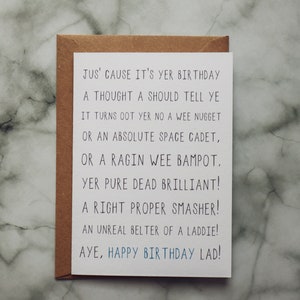 JUS' CAUSE IT'S YER BIRTHDAY
A THOUGHT A SHOULD TELL YE
IT TURNS OOT YER NO A WEE NUGGET
OR AN ABSOLUTE SPACE CADET,
OR A RAGIN WEE BAMPOT.
YER PURE DEAD BRILLIANT!
A RIGHT PROPER SMASHER!
AN UNREAL BELTER OF A LADDIE!
AYE, HAPPY BIRTHDAY LAD!